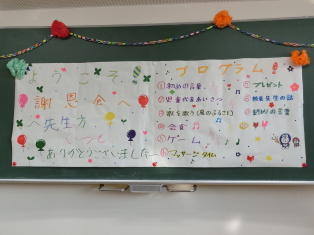 ようこそ!
謝恩会へ
先生方
ありがとうございました
プログラム
①初めの言葉
②児童代表あいさつ
③歌を歌う(風のふるさと)
④会食
⑤ゲーム
⑥マッサージタイム
⑦プレゼント
⑧校長先生の話
⑨終わりの言葉